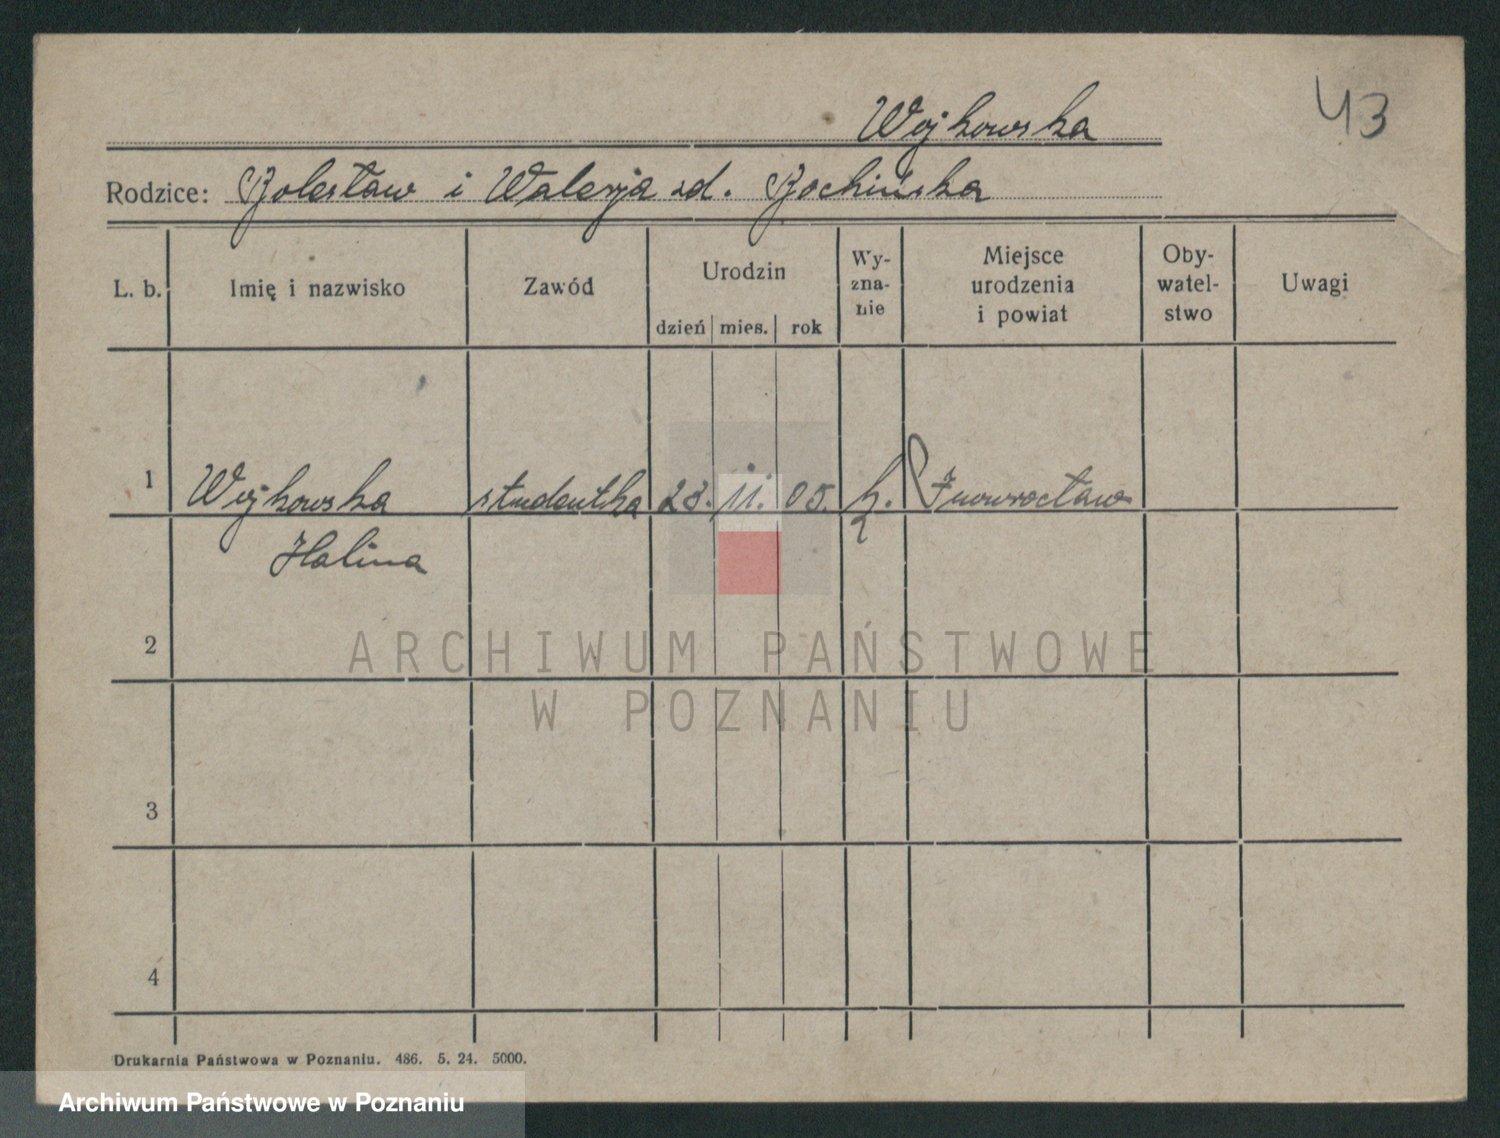 Wojkowska
43
Rodzice: Bolesław i Walerja zd. Bochińska
L. b.
Imię i nazwisko
Zawód
Urodzin
dzień mies. rok
Wy-
zna-
nie
Miejsce
urodzenia
i powiat
Oby-
watel-
stwo
Uwagi
1 Wojkowska studentka 23. 11. 05. k. Inowrocław
Halina
2
3
4
ARCHIWUM PAŃSTWOWE
W POZNANIU
Drukarnia Państwowa w Poznaniu. 486. 5. 24. 5000.
Archiwum Państwowe w Poznaniu